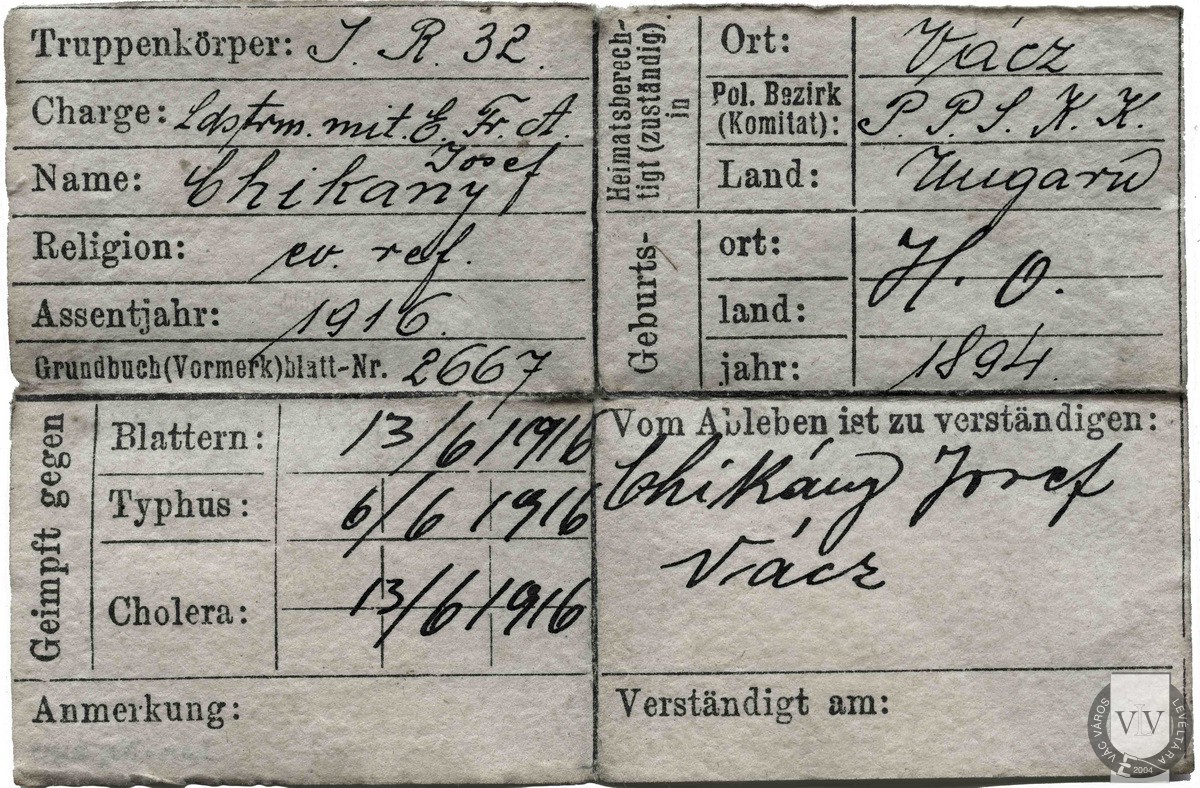 Truppenkörper: I. R. 32.
Charge: Ldstrm. mit. E. Fr. A.
Josef
Name: Chikány
Religion: ev. ref.
Assentjahr: 1916.
Grundbuch(Vormerk)blatt-Nr. 2667
Heimatsberech-
tigt (zuständig)
in
Ort: Vácz
Pol. Bezirk
(Komitat): P. P. S. K. K.
Land: Ungarn
Geburts-
ort: H. O.
land:
jahr: 1894.
Geimpft gegen
Blattern: 13/6 1916
Typhus: 6/6 1916
Cholera: 13/6 1916
Anmerkung:
Vom Ableben ist zu verständigen:
Chikány Josef
Vácz
Verständigt am:
VÁC VÁROS LEVÉLTÁRA
VLV
2004